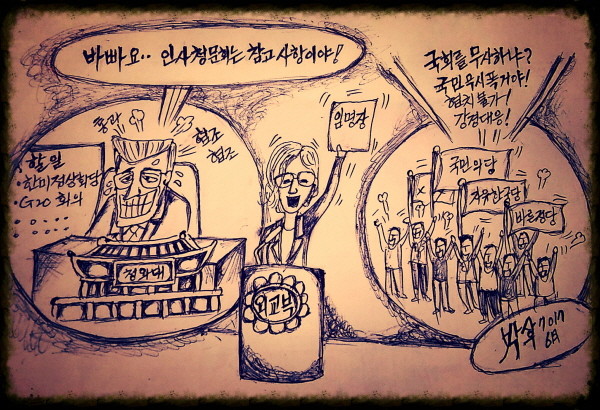 바빠요.. 인사청문회는 참고사항이야!
국회를 무시하냐?
국민무시폭거야!
협치불가!
강경대응!
임명장
협조
협조
할일
·한미정상회담
·G20 회의
국민의당
자유한국당
바른정당
청와대
외교부
2017
6月